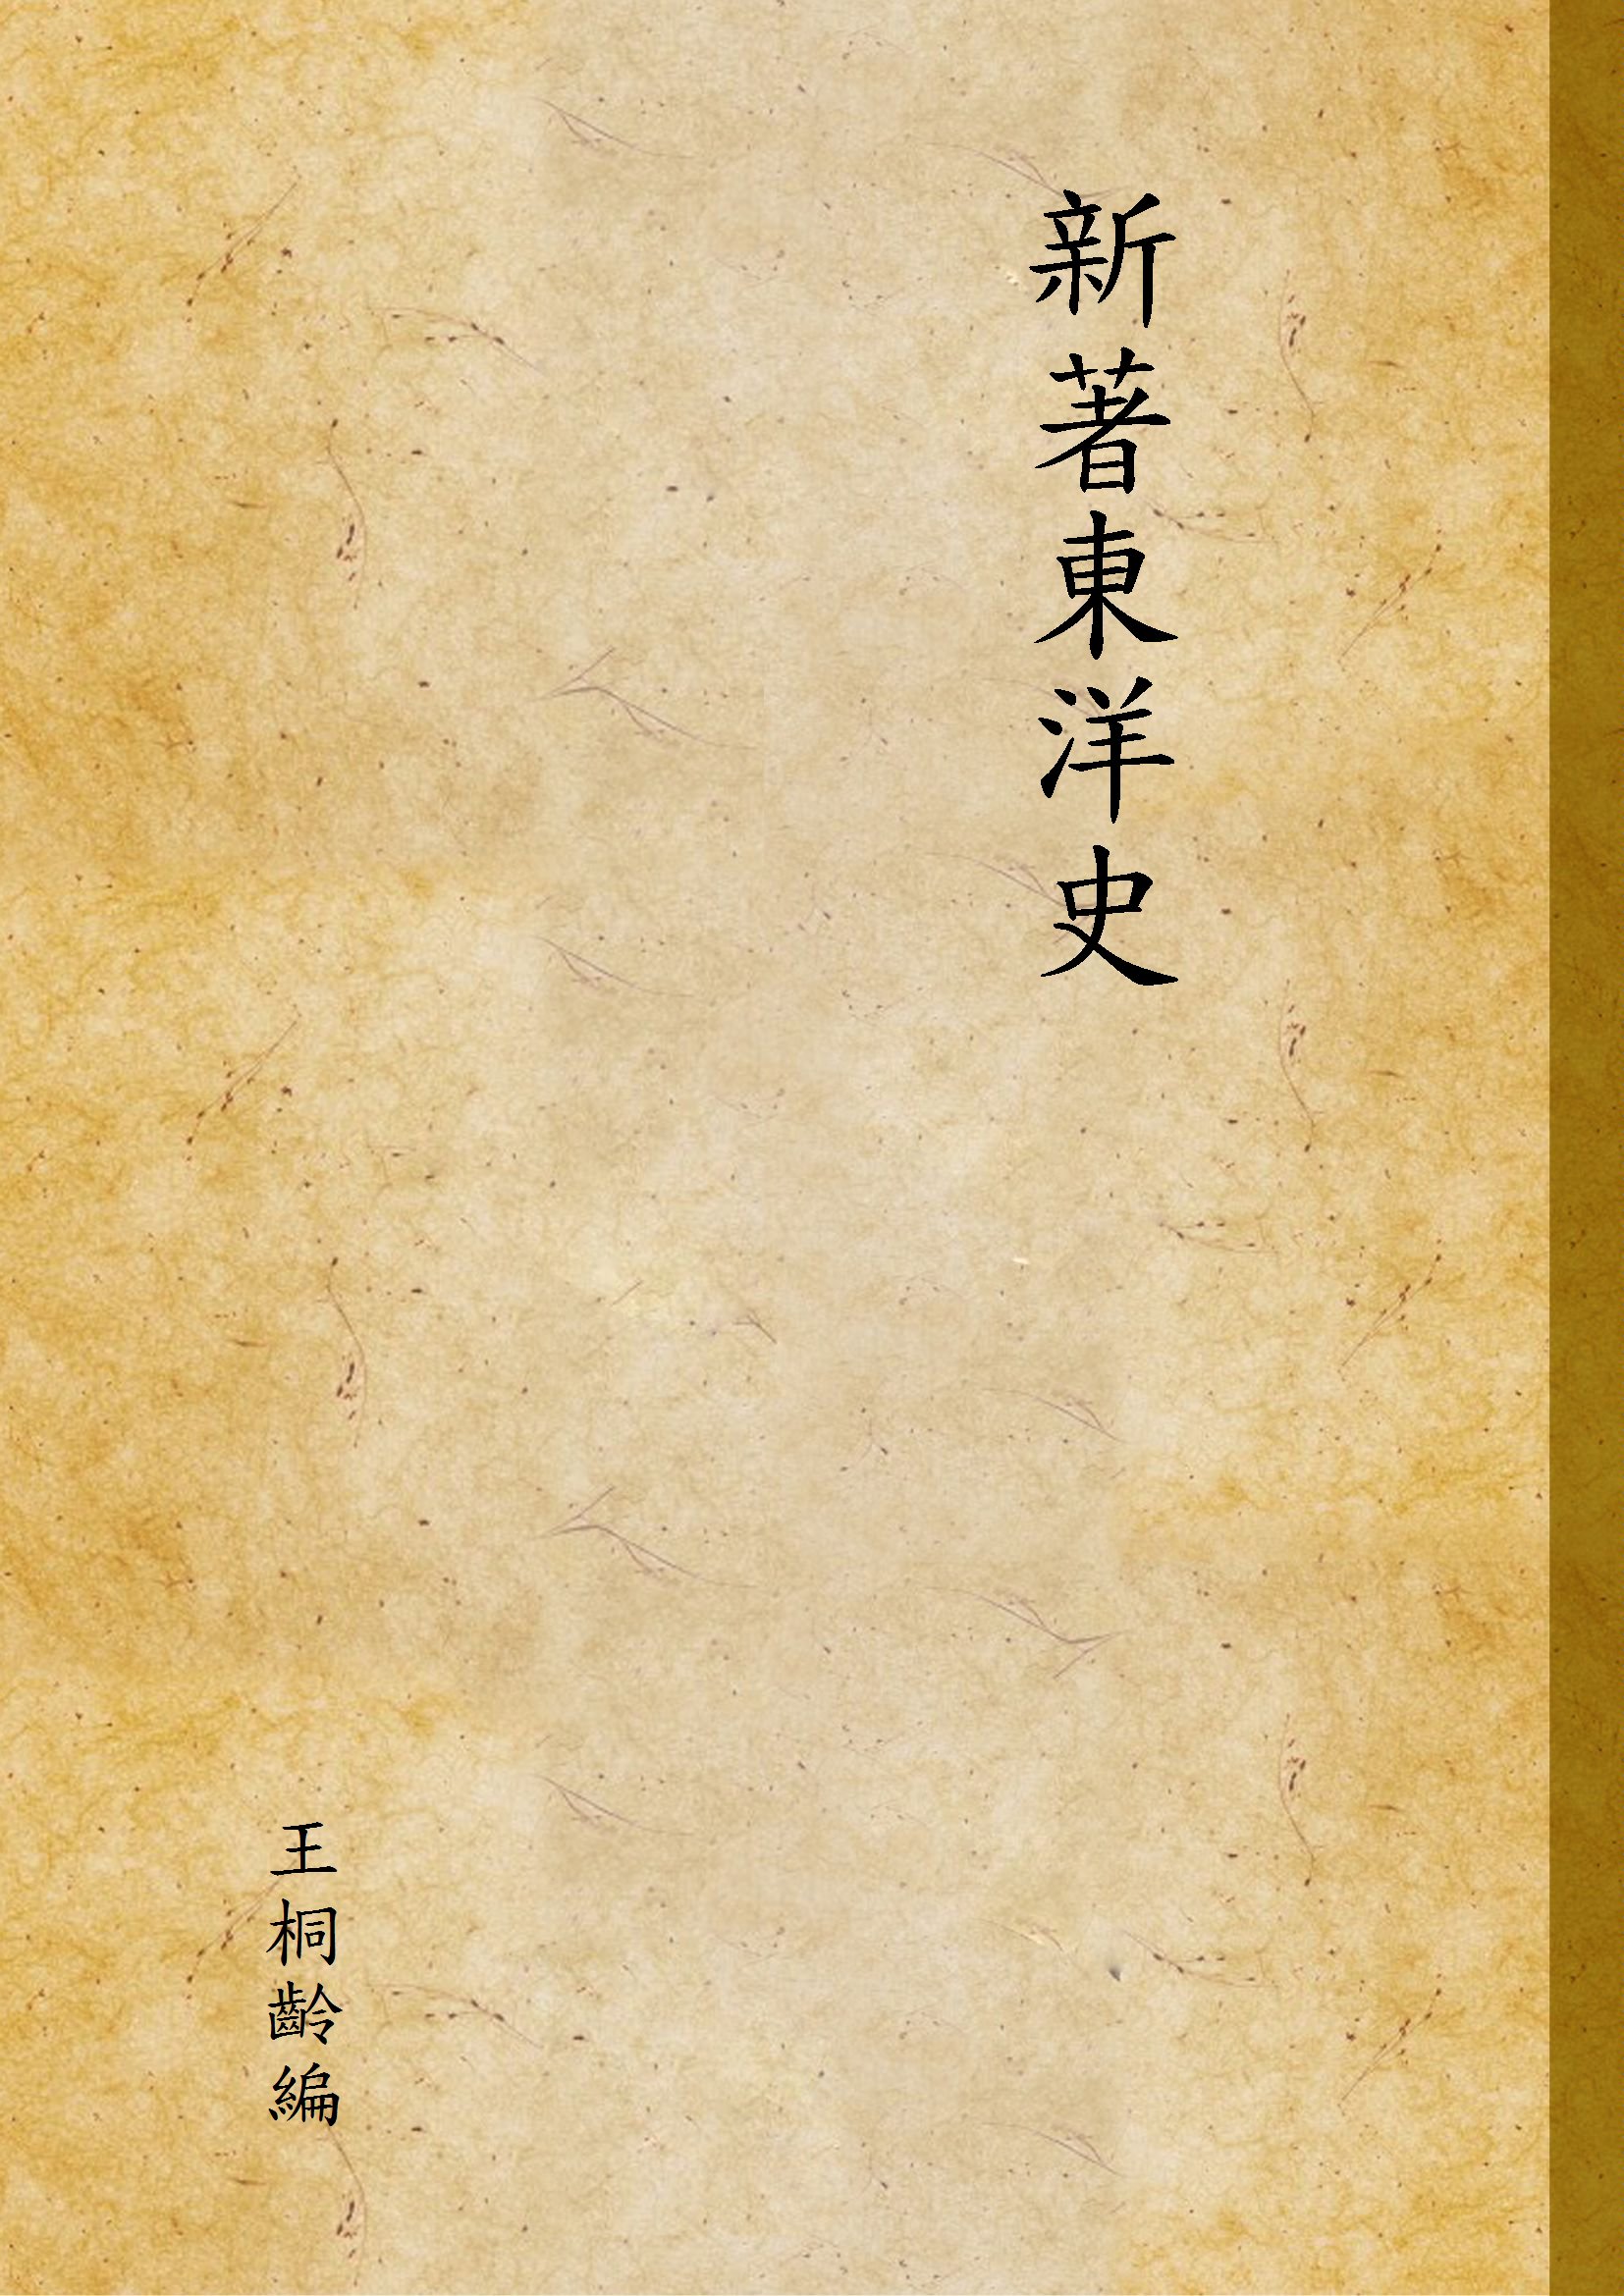 新著東洋史
王桐齡編